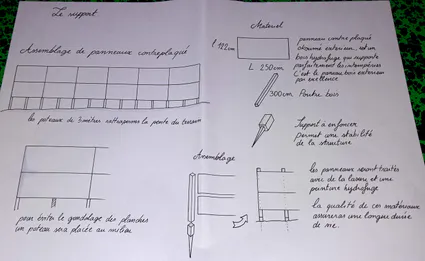 Le support
Assemblage de panneaux contreplaqué
les poteaux de 3 mètres rattraperons la pente du terrain
pour éviter le gondolage des planches
un poteau sera placée au milieu
Materiel
l 122cm
L 250cm
panneau contre plaqué
okoumé exterieur, est un
bois hydrofuge qui supporte
parfaitement les intempéries
C'est le panneau bois exterieur
par excellence
300cm Poutre bois
Support à enfoncer
permet une stabilité
de la structure
Assemblage
les panneaux seront traités
avec de la lasure et une
peinture hydrofuge
la qualité de ces matériaux
assureras une longue durée
de vie.